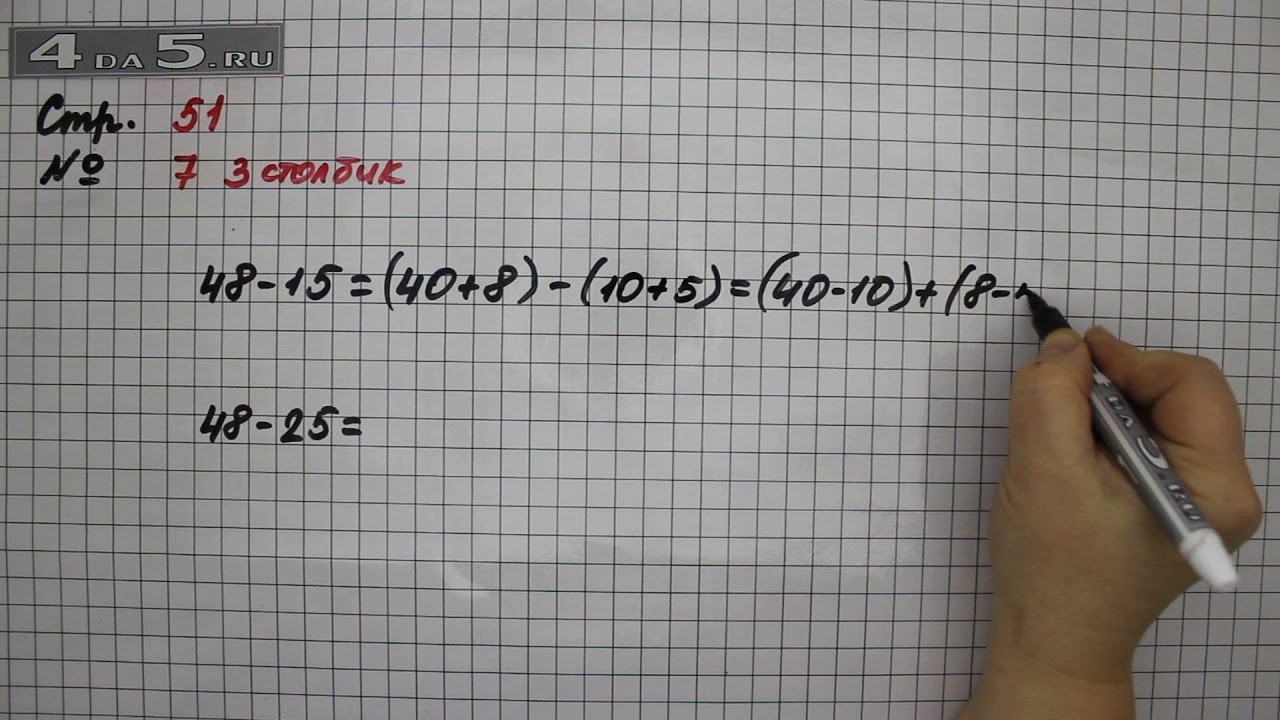 4DA5.RU
Стр. 51
№ 7 3 столбик
48-15=(40+8)-(10+5)=(40-10)+(8-
48-25=
4DA5.RU